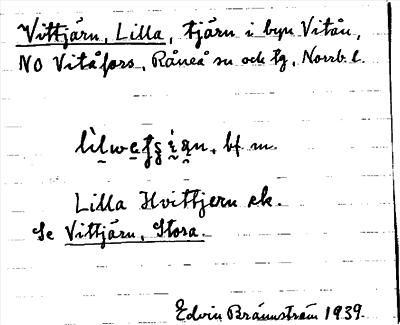 Vittjärn, Lilla, tjärn i byn Vitån,
NO Vitåfors, Råneå sn och tg, Norrb. l.
bf. m.
Lilla Hvittjern ek.
Se Vittjärn, Stora.
Edvin Brännström 1939.